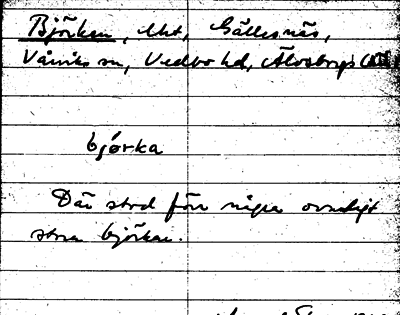 Björken, Mkt, Gällesnäs,
sn, Vedbo hd, Älvsborgs län
bjørka
Där stod förr några ovanligt
stora björkar.